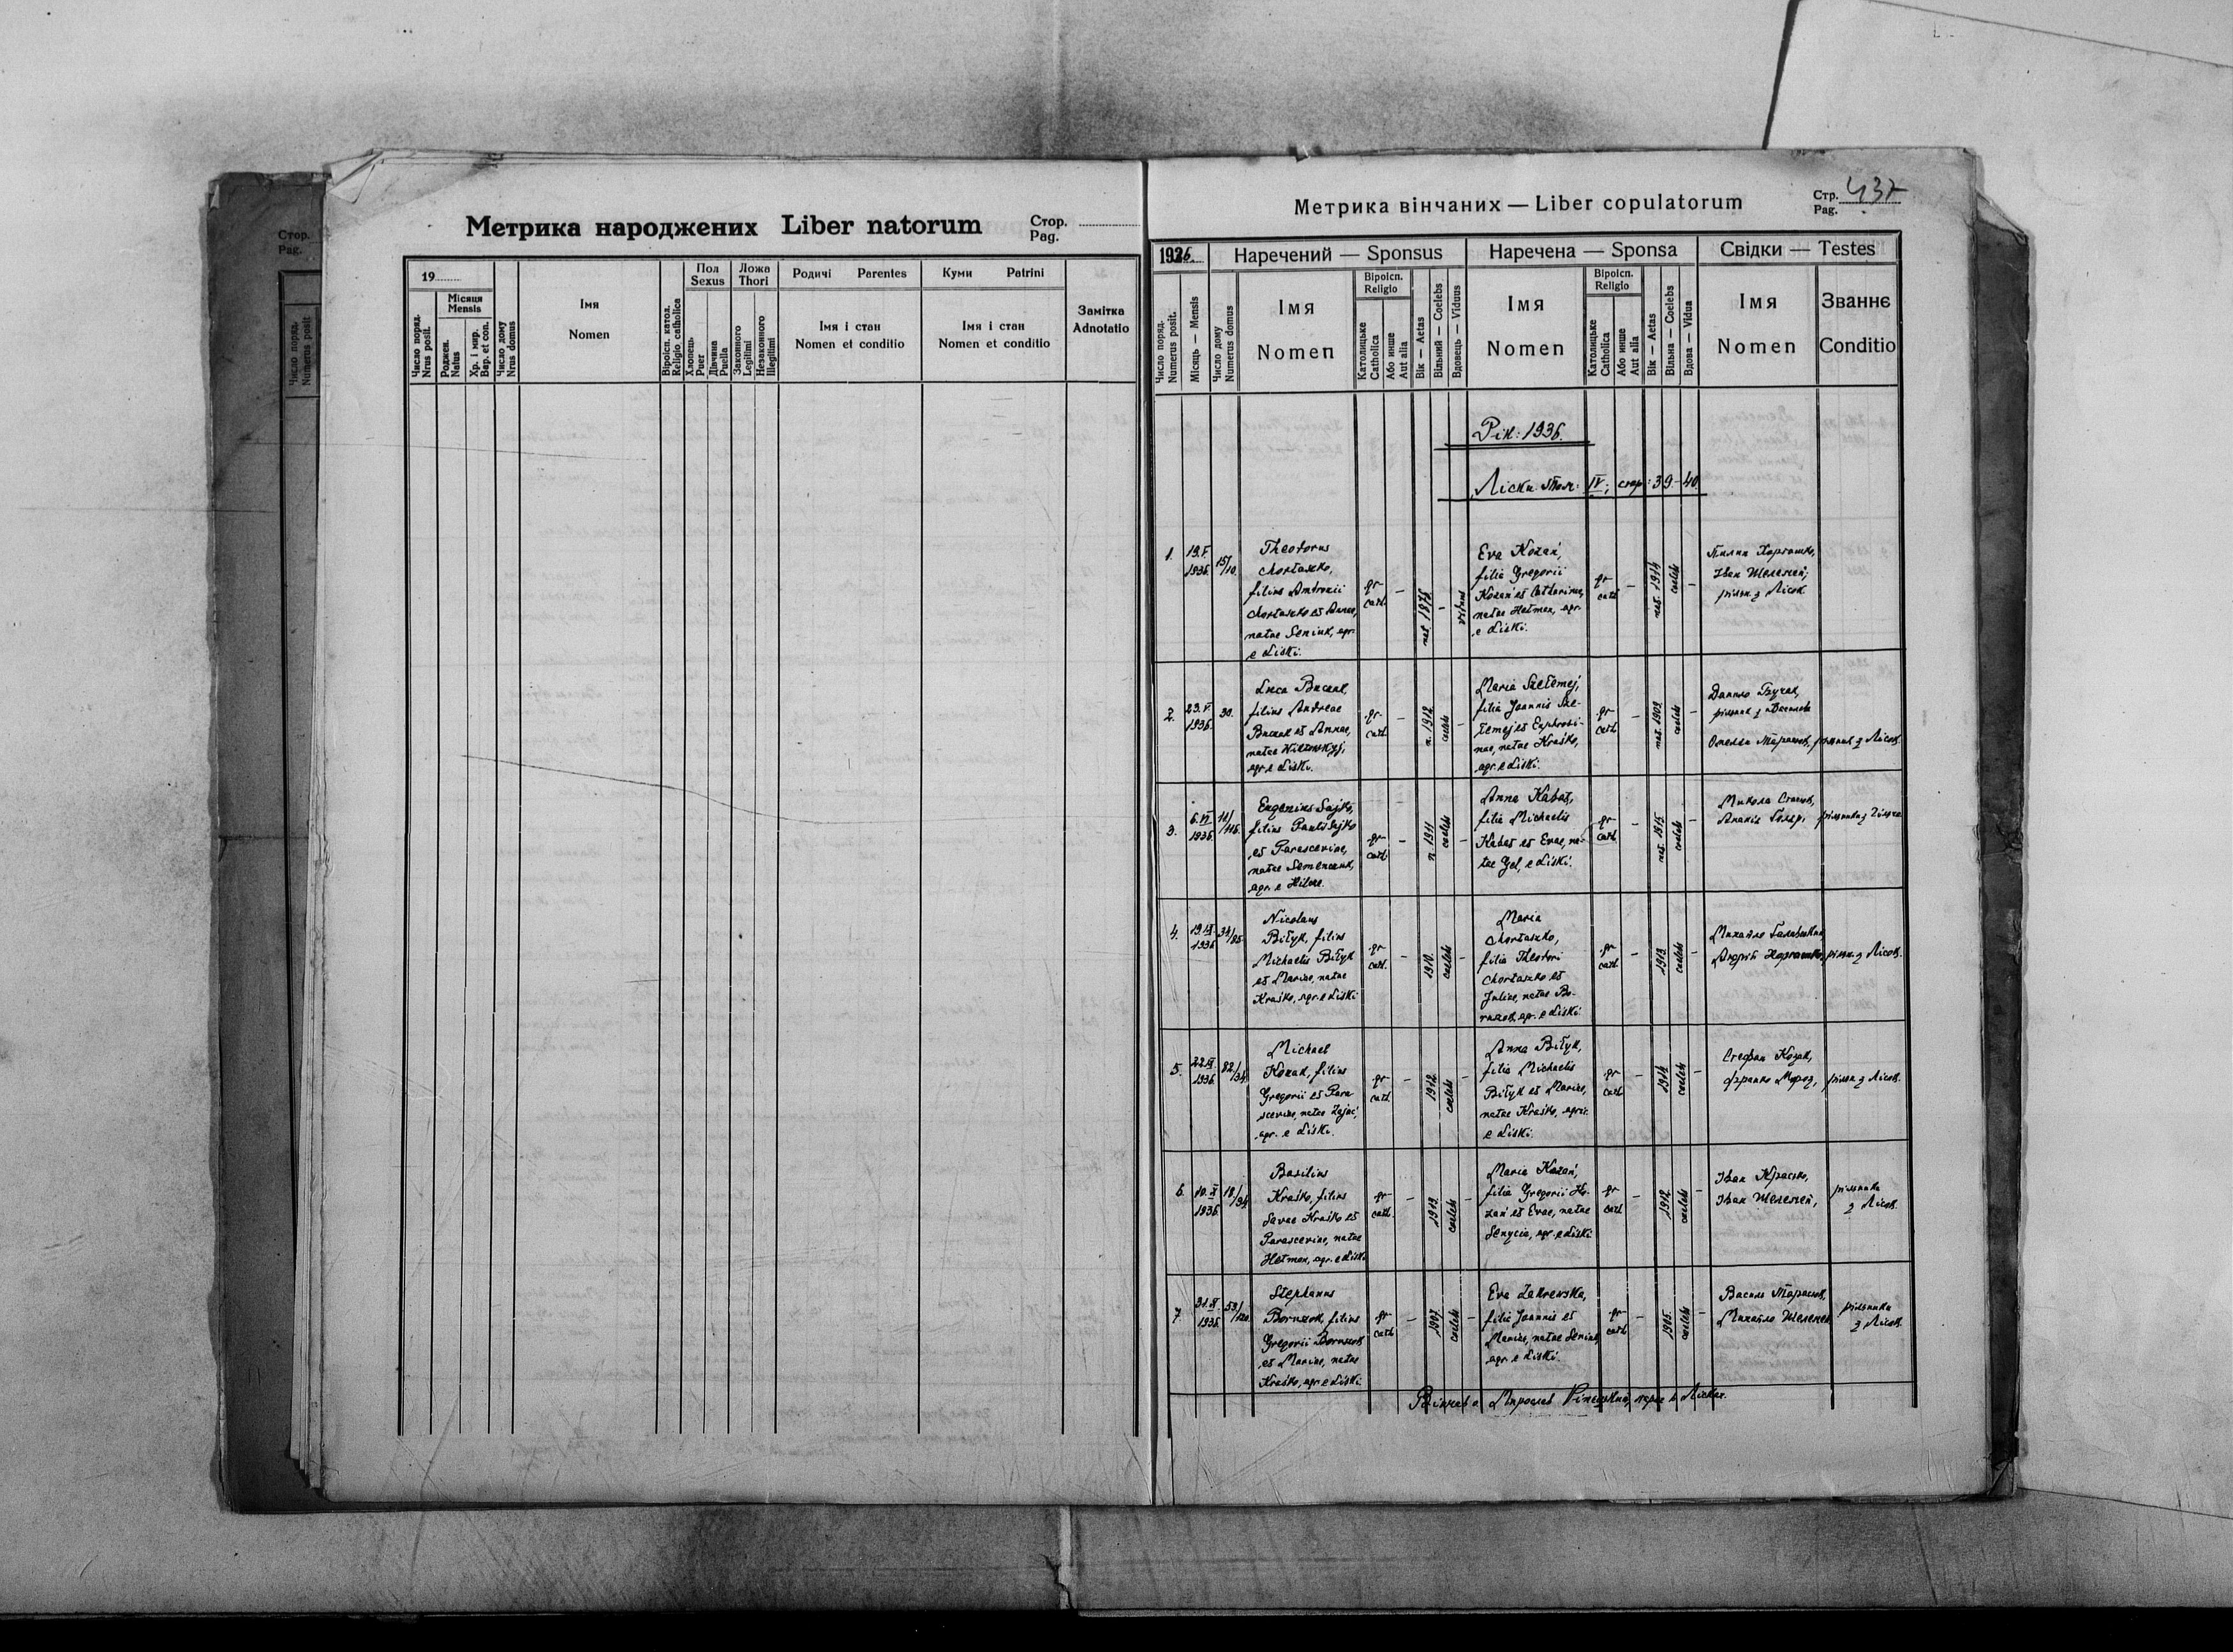 Стор.
Pag.
Число поряд.
Numerus posit
Метрика народжених Liber natorum Стор.
Pag.
19
Число поряд.
Nrus posit.
Місяця
Mensis
Роджен.
Natus
Хр. і мир.
Bap. et con.
Число дому
Nrus domus
Імя
Nomen
Віроісп. катол.
Religio catholica
Пол
Sexus
Хлопець
Puer
Дівчина
Puella
Ложа
Thori
Законного
Legitimi
Незаконного
Illegitimi
Родичі Parentes
Імя і стан
Nomen et conditio
Куми Patrini
Імя і стан
Nomen et conditio
Замітка
Adnotatio
Метрика вінчаних — Liber copulatorum
Стр. 437
Pag.
1936.
Наречений — Sponsus
Наречена — Sponsa
Свідки — Testes
Число поряд.
Numerus posit.
Місяць — Mensis
Число дому
Numerus domus
Імя
Nomen
Віроісп.
Religio
Католицьке
Catholica
Або инше
Aut alia
Вік — Aetas
Вільний — Coelebs
Вдовець — Viduus
Імя
Nomen
Віроісп.
Religio
Католицьке
Catholica
Або инше
Aut alia
Вік — Aetas
Вільна — Coelebs
Вдова — Vidua
Імя
Nomen
Званнє
Conditio
Рік: 1936.
Ліски: IV; стор: 39-40.
1.
19.V.
1936.
15/10.
Theodorus
Chortaszko,
filius
Chortaszko et Annae,
natae Seniuk, agr.
e Liski.
gr
cath.
—
nat. 1875
—
viduus
Eva Kozań,
filia Gregorii
Kozań et Catharinae,
natae Hetman, agr.
e Liski.
gr
cath
—
nat. 1914
coelebs
—
Хорташко,
Іван Шелемей,
рільн. з Лісок
2.
23.V.
1936.
30.
Luca
filius Andreae
et Annae,
natae
agr. e Liski.
gr.
cath.
—
n. 1912.
coelebs
—
Maria Szełemej,
filia Joannis Sze-
łemej et Euphrosi-
nae, natae Kraśko,
agr. e Liski.
gr
cath.
—
nat. 1909
coelebs
—
Данило
рільник з
Омелян Тарасюк, рільник з Лісок.
3.
6.VI
1936.
Eugenius Sajko,
filius Pauli Sajko
et Parasceviae,
natae
agr. e
gr
cath.
—
n. 1911
coelebs
—
Anna Kabat,
filia Michaelis
Kabat et Evae, na-
tae Gel, e Liski.
gr
cath.
—
nat. 1915
coelebs
—
Микола
рільники з
4.
1936
34/85.
Nicolaus
Biłyk, filius
Michaelis Biłyk
et Mariae, natae
Kraśko, agr. e Liski
gr
cath.
—
1910.
coelebs
—
Maria
Chortaszko,
filia Theodori
Chortaszko et
Juliae, natae Bo-
agr. e Liski.
gr
cath.
—
1913.
coelebs
—
Михайло
Андрій Хорташко, рільн. з Лісок.
5.
1936.
82/34.
Michael
Kozak, filius
Gregorii et Para
sceviae, natae Zając,
agr. e Liski.
gr
cath.
—
1912.
coelebs
—
Anna Biłyk,
filia Michaelis
Biłyk et Mariae,
natae Kraśko, agr.
e Liski.
gr
cath
—
1914.
coelebs
—
Стефан Козак,
Франко Мороз, рільн. з Лісок.
6.
1936.
Basilius
Kraśko, filius
Savae Kraśko et
Parasceviae, natae
Hetman, agr. e Liski
gr
cath.
—
1913.
coelebs
—
Maria Kozań,
filia Gregorii Ko-
zań et Evae, natae
Senycia, agr. e Liski
gr
cath
—
1912.
coelebs
—
Іван Красько,
Іван Шелемей,
рільники
з Лісок.
7
1936.
53/120.
Stephanus
filius
Gregorii
et Mariae, natae
Kraśko, agr. e Liski.
gr
cath
—
1907.
coelebs
—
Eva Zakrewska,
filia Joannis et
Mariae, natae Seniuk,
agr. e Liski.
gr
cath
—
1905.
coelebs
—
Василь Тарасюк,
Михайло Шелемей
рільники
з Лісок.
Вінчав о. Мирослав парох в Лісках.